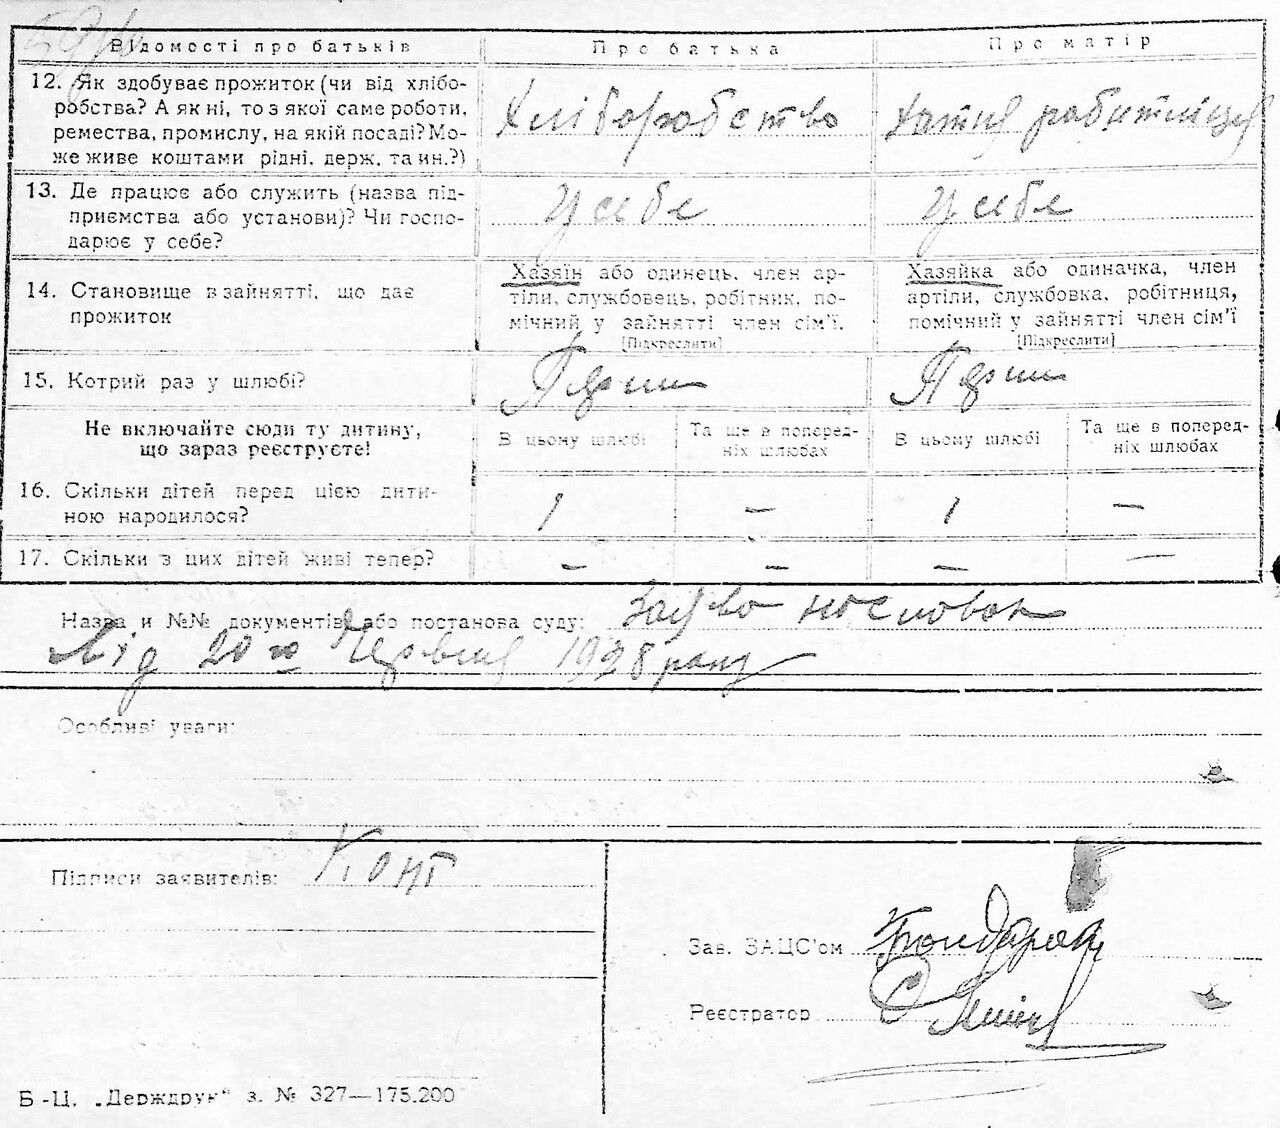 Відомості про батьків
Про батька
Про матір
12. Як здобуває прожиток (чи від хлібо-
робства? А як ні, то з якої саме роботи,
ремества, промислу, на якій посаді? Мо-
же живе коштами рідні, держ. та ин.?)
Хліборобство
хатня робітниця
13. Де працює або служить (назва під-
приємства або установи)? Чи госпо-
дарює у себе?
У себе
У себе
14. Становище в зайнятті, що дає
прожиток
Хазяїн або одинець, член ар-
тіли, службовець, робітник, по-
мічний у зайнятті член сім'ї.
[Підкреслити]
Хазяйка або одиначка, член
артіли, службовка, робітниця,
помічний у зайнятті член сім'ї
[Підкреслити]
15. Котрий раз у шлюбі?
Перши
Перши
Не включайте сюди ту дитину,
що зараз реєструєте!
В цьому шлюбі
Та ще в поперед-
ніх шлюбах
В цьому шлюбі
Та ще в поперед-
ніх шлюбах
16. Скільки дітей перед цією дити-
ною народилося?
1
—
1
—
17. Скільки з цих дітей живі тепер?
—
—
—
—
Назва и №№ документів або постанова суду:
від 20го Червня 1928 року
Особливі уваги:
Підписи заявителів: Конг
Зав. ЗАЦС'ом
Реєстратор
Б-Ц. „Держдрук“ з. № 327—175.200